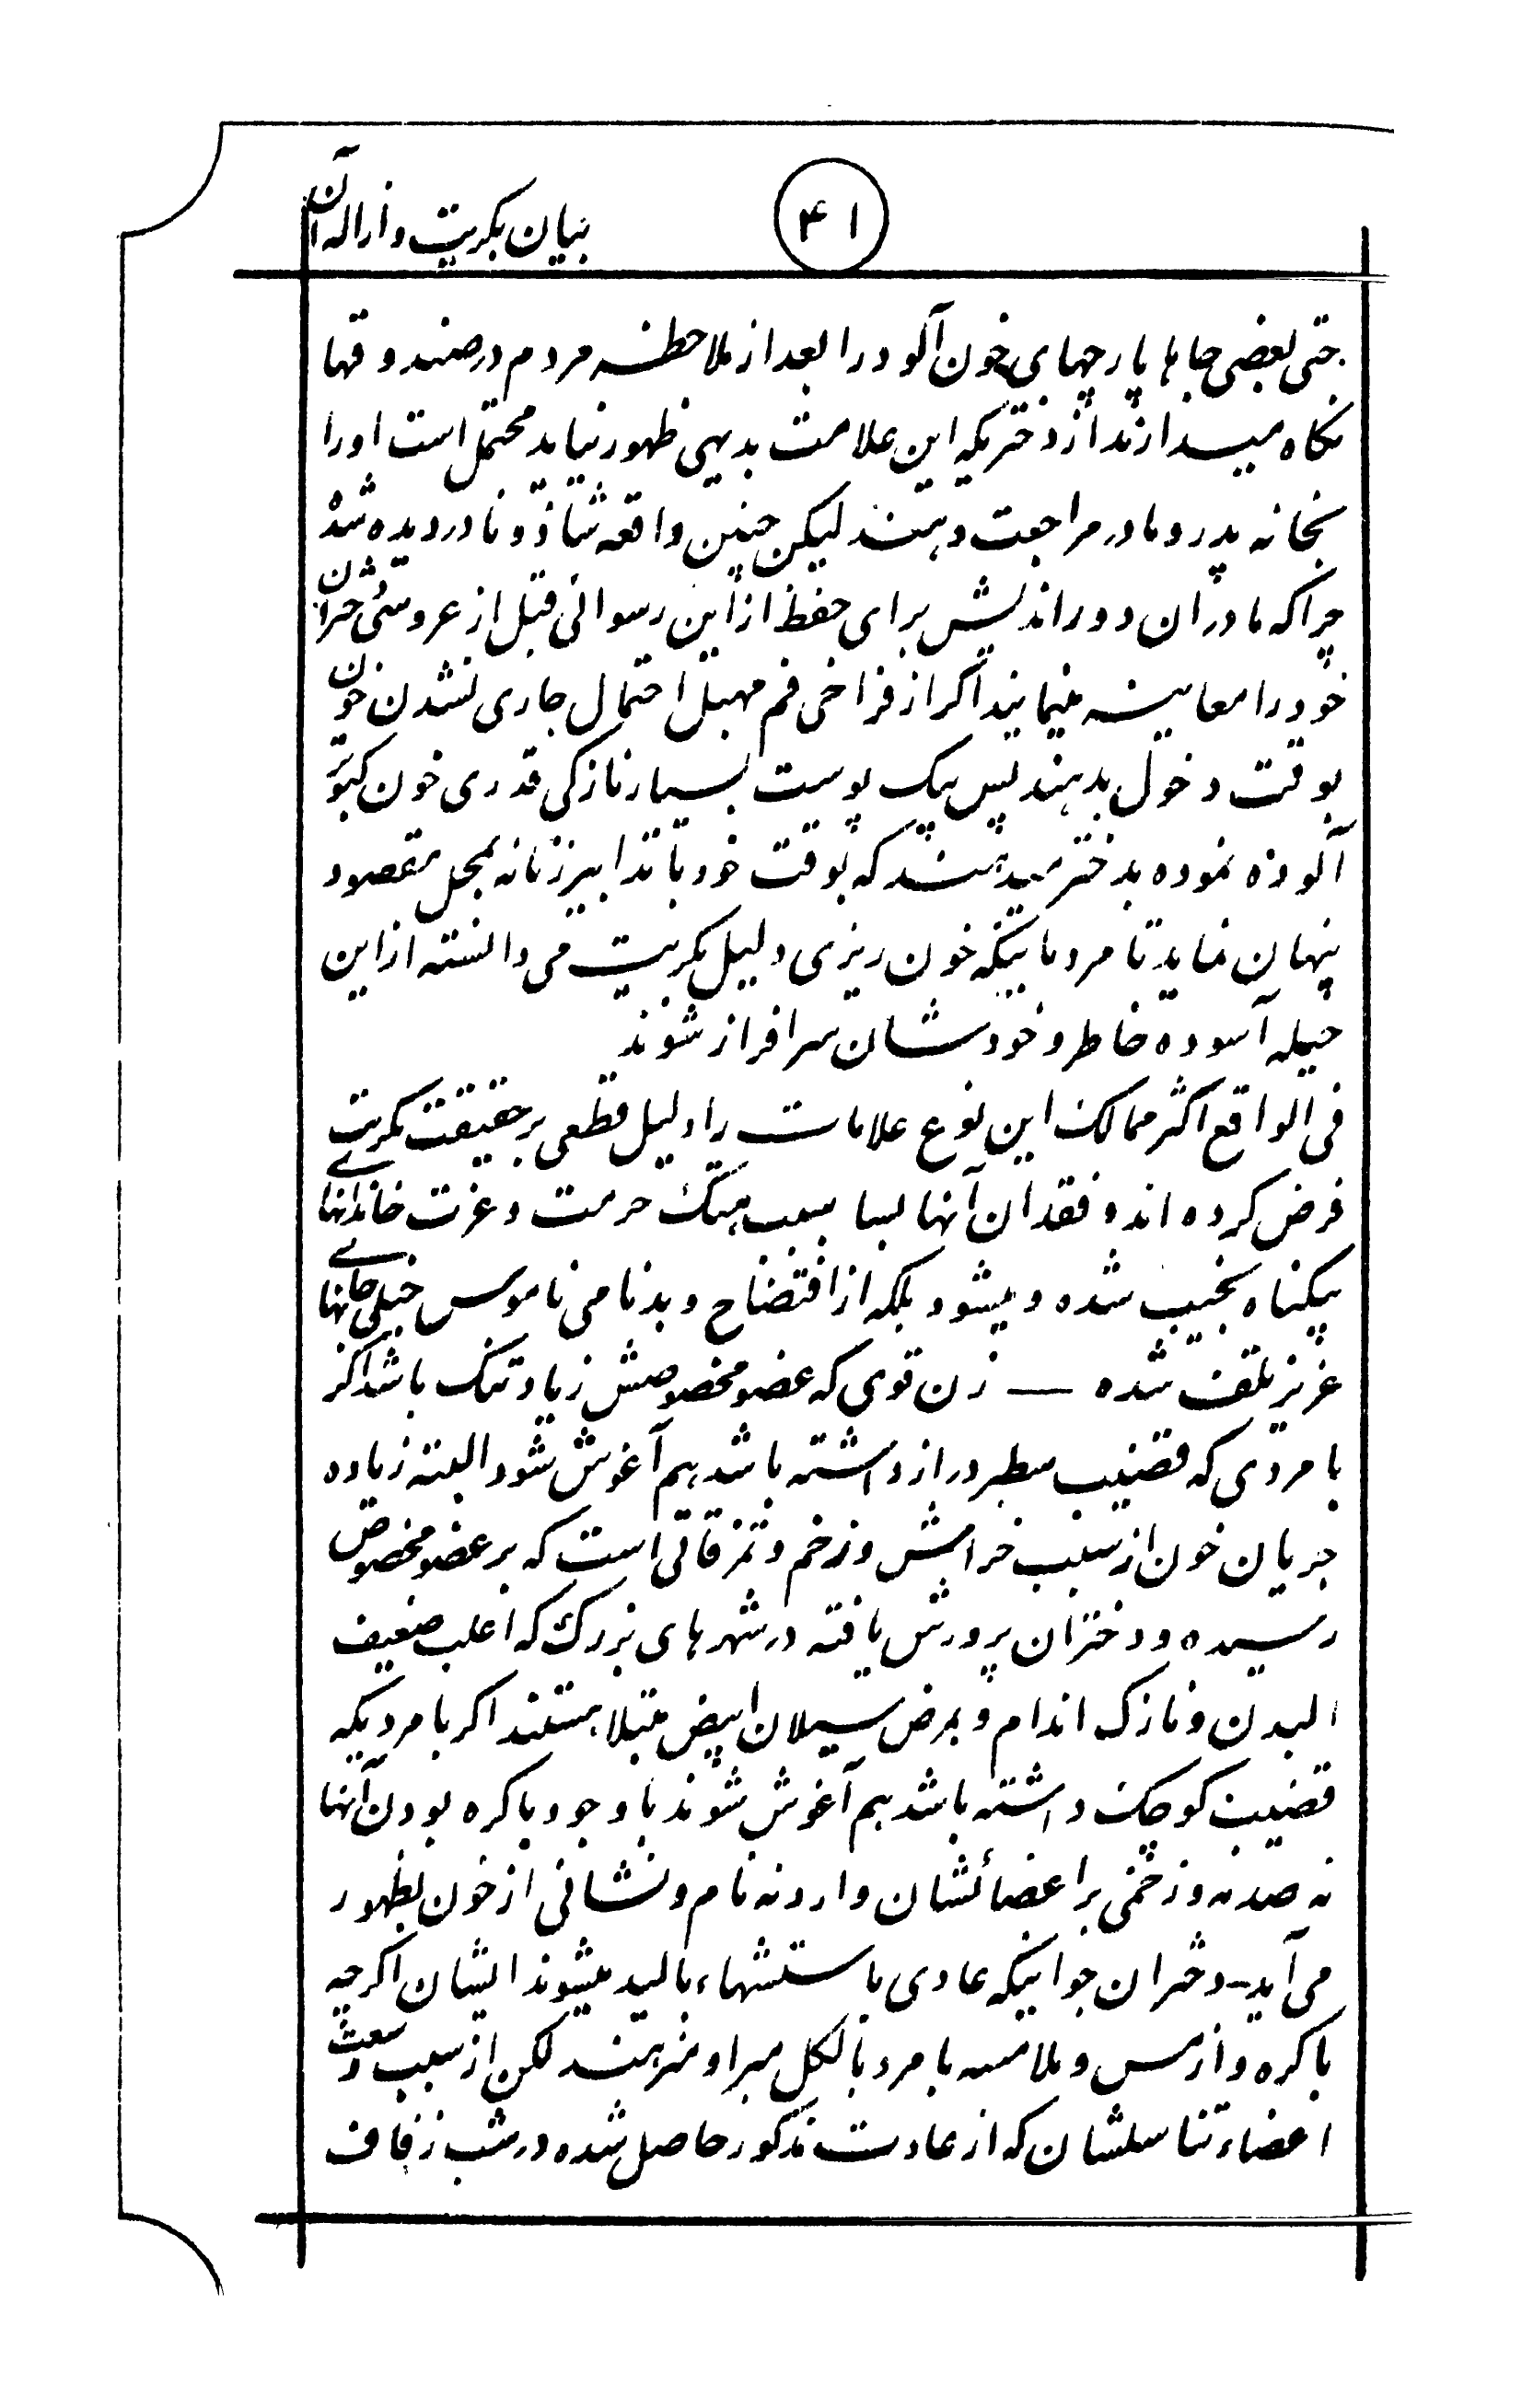 ۴۱
بیان بکریت و ازاله آن
حتی بعضی جاها پارچهای خون آلود را بعد از ملاحظه مردم در صندوقها
نگاه میدارند از دختریکه این علامت بدیهی ظهور نیاید محتمل است او را
بخانه پدر و مادر مراجعت دهند لیکن چنین واقعه شاذ و نادر دیده شده
چراکه مادران دور اندیش برای حفظ از این رسوائی قبل از عروسی دختران
خود را معاینه مینمایند اگر از فراخی فم مهبل احتمال جاری نشدن خون
بوقت دخول بدهند پس یک پوست بسیار نازکی قدری خون کبوتر
آلوده نموده بدختر میدهند که بوقت خود با تدابیر زنانه بمحل مقصود
پنهان نماید تا مردمانیکه خون ریزی دلیل بکریت می دانسته از این
حیله آسوده خاطر و خودشان سرافراز شوند
فی الواقع اکثر ممالک این نوع علامات را دلیل قطعی بر حقیقت بکریت
فرض کرده اند و فقدان آنها بسا سبب هتک حرمت و عزت خاندانهای
بیگناه نجیب شده و میشود بلکه از افتضاح و بدنامی ناموس خیلی جانهای
عزیز تلف شده — زن قوی که عضو مخصوصش زیاد تنگ باشد اگر
با مردی که قضیب سطبر دراز داشته باشد هم آغوش شود البته زیاده
جریان خون از سبب خراش و زخم و تمزقاتی است که بر عضو مخصوص
رسیده و دختران پرورش یافته در شهرهای بزرگ که اغلب ضعیف
البدن و نازک اندام و بمرض سیلان ابیض مبتلا هستند اگر با مردیکه
قضیب کوچک داشته باشد هم آغوش شوند با وجود باکره بودن آنها
نه صدمه و زخمی بر اعضائشان وارد نه نام و نشانی از خون بظهور
می آید - دختران جوانیکه عادی باستشهاء بالید میشوند ایشان اگرچه
باکره و از مس و ملامسه با مرد بالکل مبرا و منزهند لکن از سبب وسعت
اعضاء تناسلشان که از عادت مذکور حاصل شده در شب زفاف